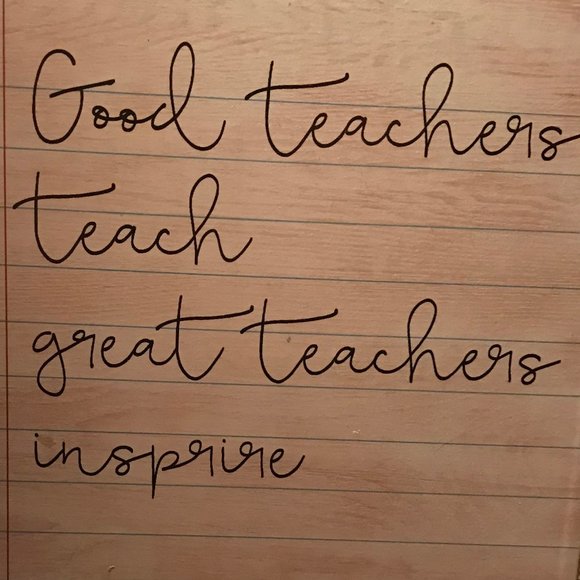 Good teachers
teach
great teachers
insprire